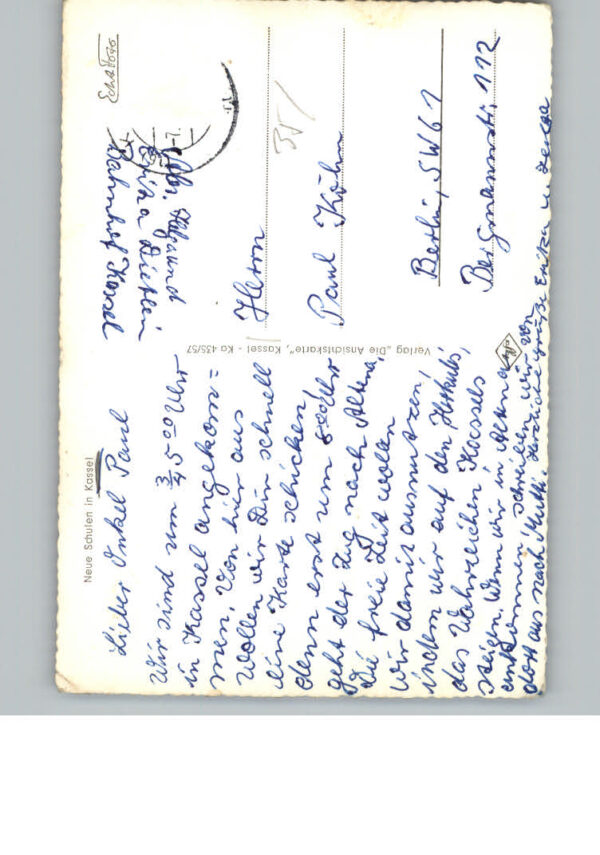 Neue Schulen in Kassel
Lieber Onkel Paul
Wir sind um 3/4 5 00 Uhr
in Kassel angekom=
men. Von hier aus
wollen wir Dir schnell
eine Karte schicken,
denn erst um 8 00 Uhr
geht der Zug nach Altena,
Die freie Zeit wollen
wir damit ausnutzen,
indem wir auf den Herkules,
das Wahrzeichen Kassels
steigen. Wenn wir in Altena
ankommen schreiben wir von
dort aus nach Mutti. Herzliche Grüße Erika u.
Verlag „Die Ansichtskarte", Kassel - Ka 435/57
Echt Foto
Abs.
Erika
Bahnhof Kassel
351
Herrn
Paul Köhn
Berlin, SW 61
Bergmannstr. 112